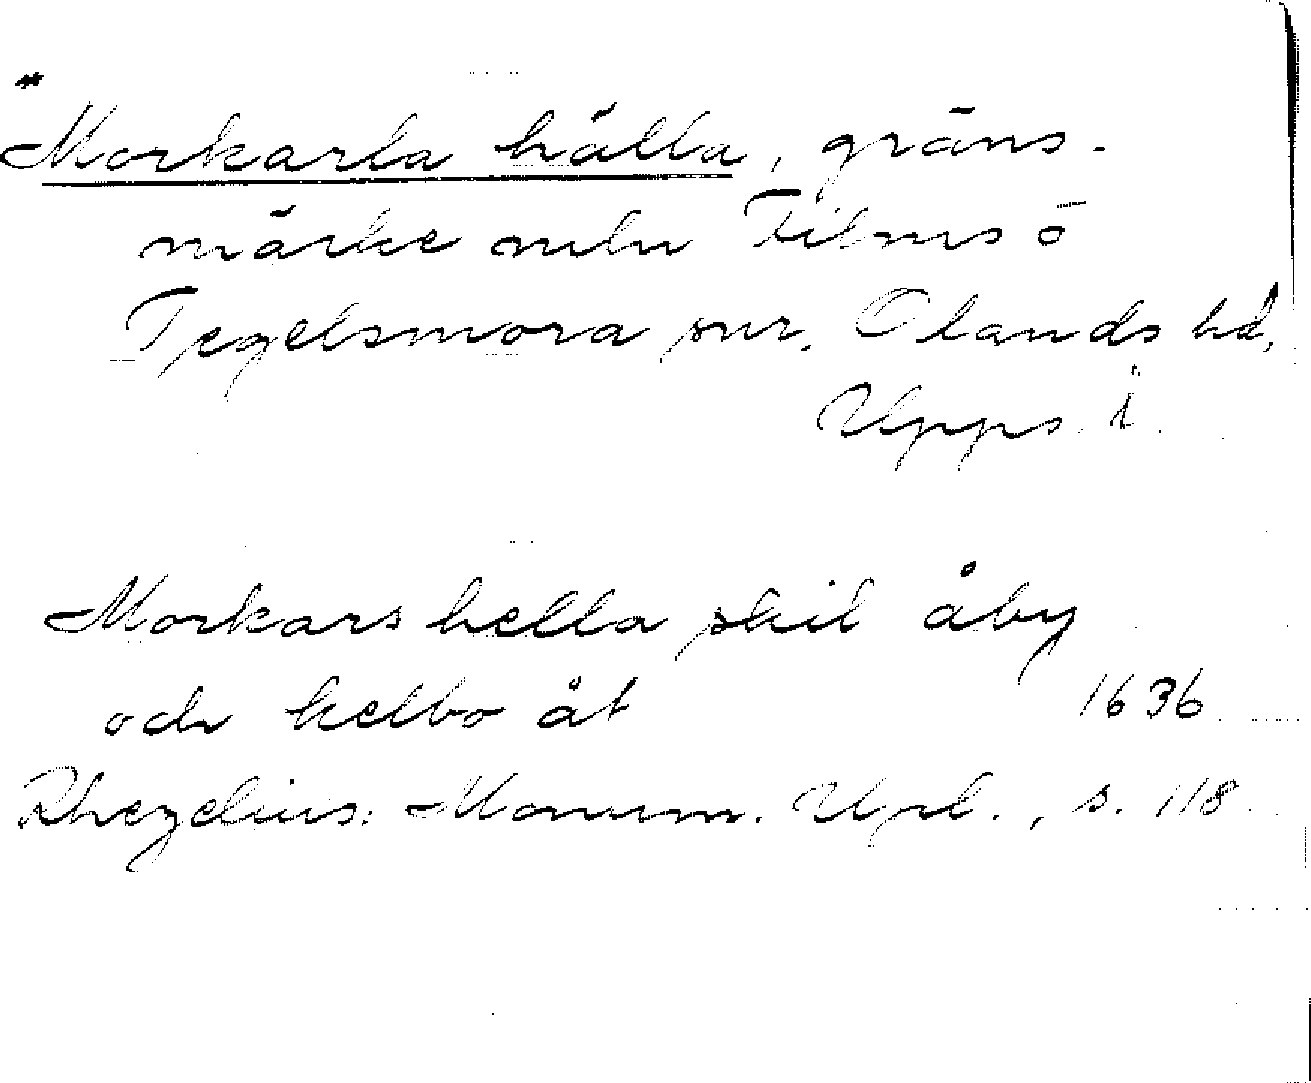 *Morkarla hälla, gräns-
märke mln Films o
Tegelsmora snr. Olands hd,
Upps. l.
Morkars hella skil åby
och kelbo åt 1636
Rhezelius: Monum. Upl., s. 118.